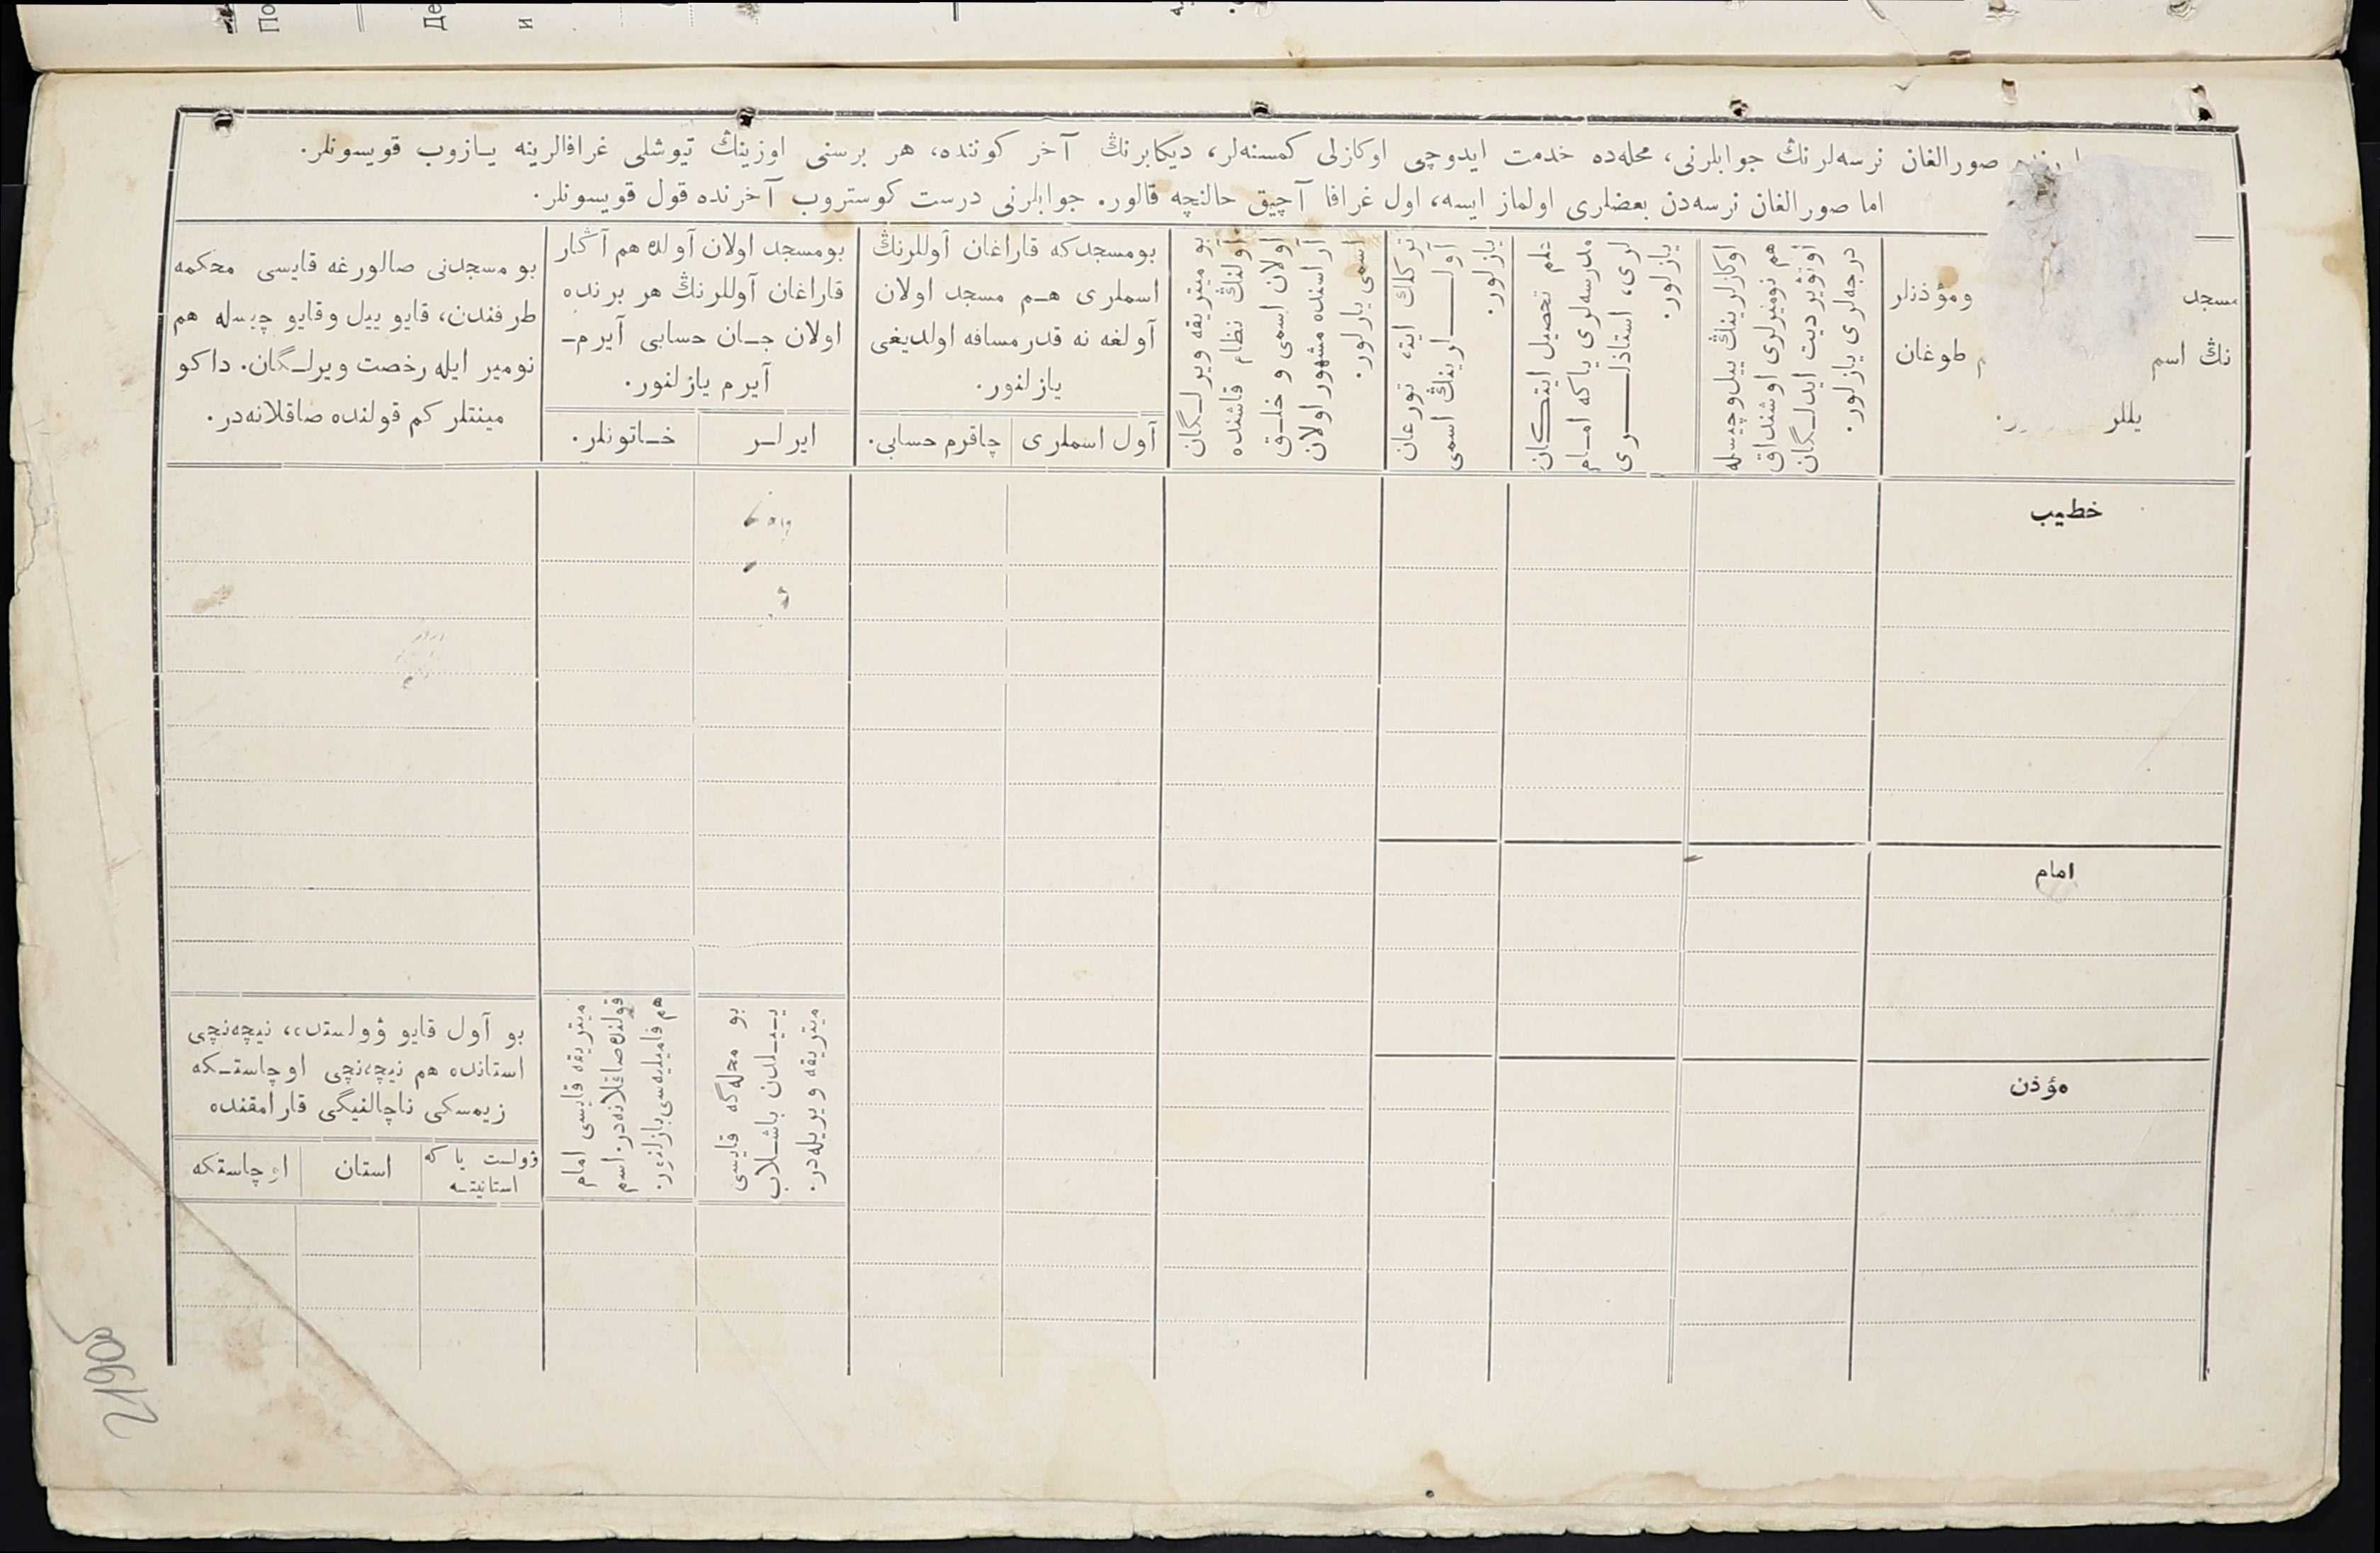 صورالغان نرسه‌لرنڭ جوابلرنی، محله‌ده خدمت ایدوچی اوکازلی کمسنه‌لر، دیکابرنڭ آخر کوننده، هر برسنی اوزینڭ تیوشلی غرافالرینه یازوب قویسونلر.
اما صورالغان نرسه‌دن بعضلری اولماز ایسه، اول غرافا آچیق حالنچه قالور. جوابلرنی درست کوستروب آخرنده قول قویسونلر.
مسجد ومؤذنلر
نڭ اسم طوغان
یللر
درجه‌لری یازلور.
اوتویردیت ایدلـگان
هم نومیرلری اوشنداق
اوکازلرینڭ ییل وچیسله
علم تحصیل ایتـکان
مدرسه‌لری یاکه امـام
لری، استاذلـــری
یازلور.
ترکلك ایته، تورغان
آولــــلرینڭ اسمی
یازلور.
بو میتریقه ویرلـگان
آولنڭ نظام قاشنده
اولان اسمی و خلـق
آراسنده مشهور اولان
اسمی یازلور.
بومسجدکه قاراغان آوللرنڭ
اسملری هـم مسجد اولان
آولغه نه قدر مسافه اولدیغی
یازلنور.
آول اسملری
چاقرم حسابی.
بومسجد اولان آولده هم آڭار
قاراغان آوللرنڭ هر برنده
اولان جـان حسابی آیرم-
آیرم یازلنور.
ایرلـر
خـاتونلر.
بو مسجدنی صالورغه قایسی محکمه
طرفندن، قایو ییل وقایو چیسله هم
نومیر ایله رخصت ویرلـگان. داکو
مینتلر کم قولنده صاقلانه‌در.
خطیب
امام
مؤذن
بو محله‌گه قایسی
ییـلدن باشـلاب
میتریقه ویریله‌در.
میتریقه قایسی امام
قولنده صاقلانه‌در. اسم
هم فامیلیه‌سی یازلنور.
بو آول قایو ۋولستده، نیچه‌نچی
استانده هم نیچه‌نچی اوچاستـکه
زیمسکی ناچالنیگی قارامقنده
ۋولست یاکه
استانیتـه
استان
اوچاستکه